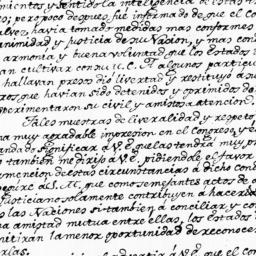 mientos y sentidos la inteligencia de estas
os; pero poco despues fue informado de que el Co
alvez havia tomado medidas mas conformes
animidad y Justicia de su Nacion, y mas con
armonia y buena voluntad que los Estados
an cultivar con su M.C. A algunos particu
hallaban presos dió livertad y restituyó a su
ros que havian sido detenidos y oprimidos do
esperimentaron su civil y amistoso attencion
Tales muestras de liveralidad y respeto
a muy agradable impresion en el Congreso, y
andado significar à V.E. que las tendrá muy pr
o tambien me dirijo à V.E. pidiendole el favor
mencion de estas circunstancias à dicho con
S.M. que como semejantes actos de
Justicia no solamente contribuyen a hacer
las Naciones si tambien a conciliar y co
na amistad mutua entre ellas, los Estados
mitiran la menor oportunidad de reconoce
rlas.
à V.E. que el con